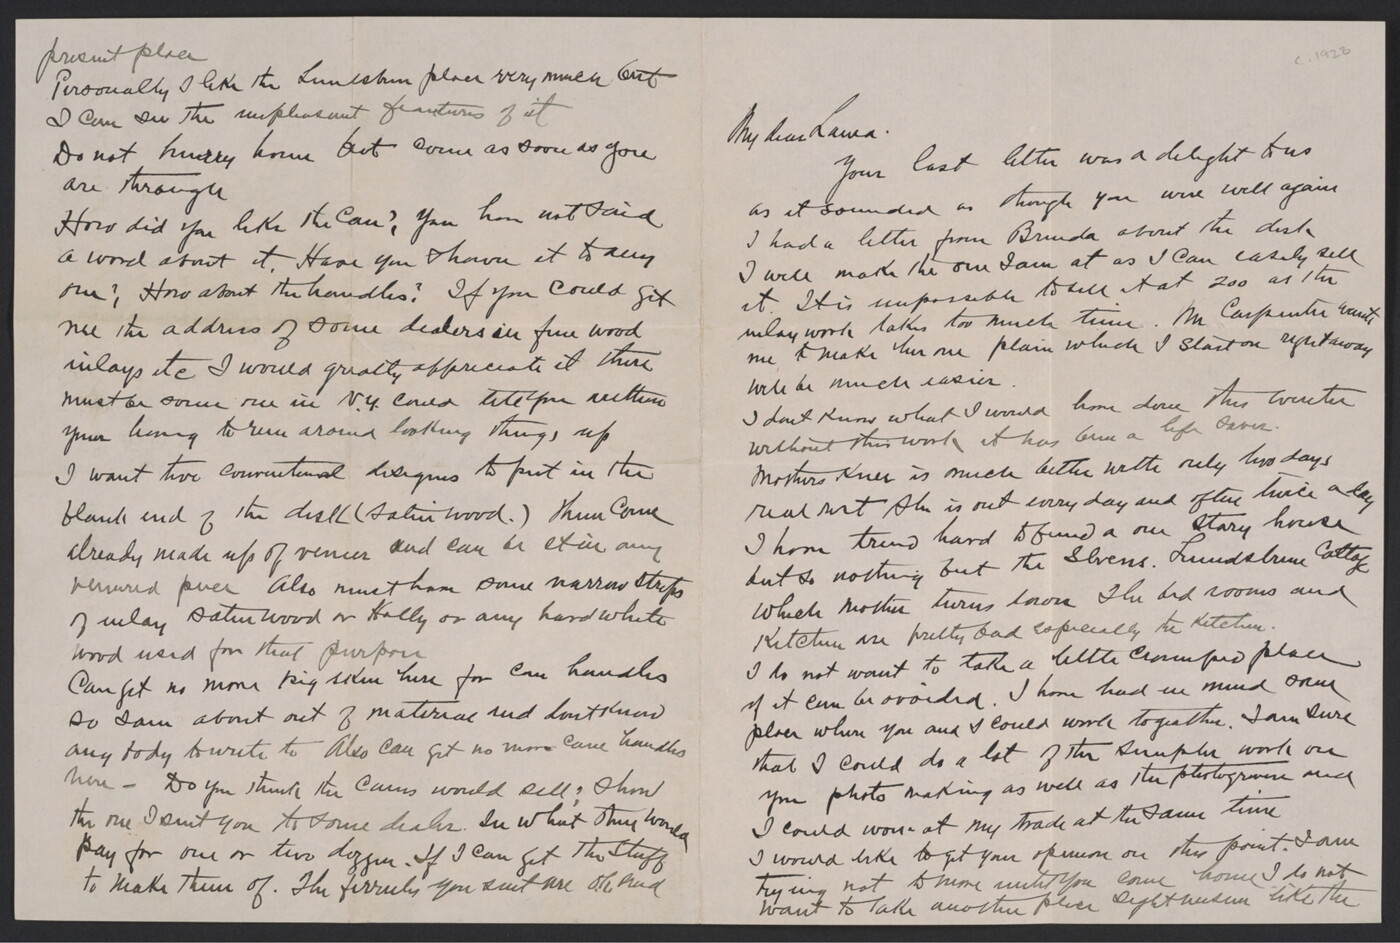 c. 1928
My dear Laura.
Your last letter was a delight to us
as it sounded as though you were well again
I had a letter from Brenda about the desk
I will make the one I am at as I can easily sell
it. It is impossible to sell it at 200 as the
inlay work takes too much time. Mr Carpenter wants
me to make her one plain which I start on right away
will be much easier.
I dont know what I would have done this winter
without this work it has been a life saver.
Mothers knee is much better with only two days
real rest She is out every day and often twice a day
I have tried hard to find a one story house
but so nothing but the Stevens. Cottage
which Mother turns down The bed rooms and
Kitchen are pretty bad especially the Kitchen.
I do not want to take a little cramped place
if it can be avoided. I have had in mind some
place where you and I could work together. I am sure
that I could do a lot of the simpler work on
your photo making as well as the photogravure and
I could work at my trade at the same time
I would like to get your opinion on this point. I am
trying not to move until you come home I do not
want to take another place sight unseen like the
present place
Personally I like the place very much but
I can see the unpleasant features of it
Do not hurry home but come as soon as you
are through
How did you like the Cane? You have not said
a word about it. Have you shown it to any
one? How about the handles? If you could get
me the address of some dealers in fine wood
inlays etc I would greatly appreciate it there
must be some one in N.Y. could tell you without
your having to run around looking things up
I want two conventional designs to put in the
blank end of the desk (satin wood.) These come
already made up of veneer and can be set in any
veneered piece Also must have some narrow strips
of inlay satin wood or Holly or any hard white
wood used for that purpose
Can get no more pig skin here for cane handles
so I am about out of material and dont know
any body to write to Also can get no more cane handles
here - Do you think the Canes would sell? Show
the one I sent you to some dealer. See what they would
pay for one or two dozen. If I can get the stuff
to make them of. The ferrules you sent are OK and